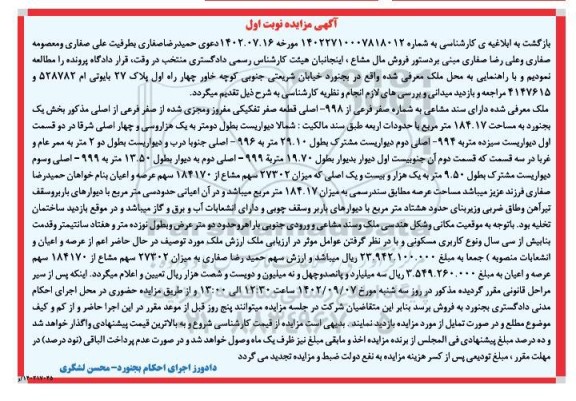 آگهی مزایده نوبت اول
بازگشت به ابلاغیه ی کارشناسی به شماره ۱۴۰۲۲۷۱۰۰۰۷۸۱۸۰۱۲ مورخه ۱۴۰۲.۰۷.۱۶دعوی حمیدرضاصفاری بطرفیت علی صفاری ومعصومه
صفاری وعلی رضا صفاری مبنی بردستور فروش مال مشاع ، اینجانبان هیئت کارشناس رسمی دادگستری منتخب در وقت، قرار دادگاه پرونده را مطالعه
نمودیم و با راهنمایی به محل ملک معرفی شده واقع در بجنورد خیابان شریعتی جنوبی کوچه خاور چهار راه اول پلاک ۲۷ بایوتی ام ۵۲۸۷۸۲ و
۴۱۴۷۶۱۵ مراجعه و بازدید میدانی و بررسی های لازم انجام و نظریه کارشناسی به شرح ذیل تقدیم میگردد.
ملک معرفی شده دارای سند مشاعی به شماره صفر فرعی از ۹۹۸- اصلی قطعه صفر تفکیکی مفروز ومجزی شده از صفر فرعی از اصلی مذکور بخش یک
بجنورد به مساحت ۱۸۴.۱۷ متر مربع با حدودات اربعه طبق سند مالکیت : شمالا دیواریست بطول دومتر به یک هزاروسی و چهار اصلی شرقا در دو قسمت
اول دیواریست سیزده متربه ۹۹۴- اصلی دوم دیواریست مشترک بطول ۲۹.۱۰ متر به ۹۹۶ - اصلی جنوبا درب و دیواریست بطول دو ۲ متر به ممر عام و
غربا در سه قسمت که قسمت دوم آن جنوبیست اول دیوار بدیوار بطول ۱۹.۷۰ متربه ۹۹۹ - اصلی دوم به دیوار بطول ۱۳.۵۰ متر به ۹۹۹ – اصلی وسوم
دیواریست مشترک بطول ۹.۵۰ متر به یک هزار و بیست و یک اصلی که میزان ۲۷۳۰۲ سهم مشاع از ۱۸۴۱۷۰ سهم عرصه و اعیان بنام خواهان حمیدرضا
صفاری فرزند عزیز میباشد مساحت عرصه مطابق سندرسمی به میزان ۱۸۴.۱۷ متر مربع میباشد و در آن اعیانی حدودسی متر مربع با دیوارهای باربروسقف
تیرآهن وطاق ضربی وزیربنای حدود هشتاد متر مربع با دیوارهای باربر وسقف چوبی و دارای انشعابات آب و برق و گاز میباشد و در موقع بازدید ساختمان
تخلیه بود. باتوجه به موقعیت مکانی وشکل هندسی ملک وسند مشاعی و ورودی جنوبی باراهروحدود دو متر عرض وبطول نوزده متر و هفتاد سانتیمتر وقدمت
بنابیش از سی سال ونوع کاربری مسکونی و با در نظر گرفتن عوامل موثر در ارزیابی ملک ارزش ملک مورد توصیف در حال حاضر اعم از عرصه و اعیان و
انشعابات منصوبه ) جمعا به مبلغ ۲۳.۹۴۲.۱۰۰.۰۰۰ ریال میباشد و ارزش سهم حمید رضا صفاری به میزان ۲۷۳۰۲ سهم مشاع از ۱۸۴۱۷۰ سهم
عرصه و اعیان به مبلغ ۳.۵۴۹.۲۶۰.۰۰۰ ریال سه میلیارد و پانصدوچهل و نه میلیون و دویست و شصت هزار ریال تعیین و اعلام میگردد. اینکه پس از سیر
مراحل قانونی مقرر گردیده مذکور در روز سه شنبه مورخ ۱۴۰۲/۰۹/۰۷ راس ساعت ۱۲:۳۰ الی ۱۳:۰۰ و از طریق مزایده حضوری در محل اجرای احکام
مدنی دادگستری بجنورد به فروش برسد بنابر این متقاضیان شرکت در جلسه مزایده میتوانند پنج روز قبل از موعد مقرر در این اجرا حاضر و از کم و کیف
موضوع مطلع و در صورت تمایل از مورد مزایده بازدید نمایند. بدیهی است مزایده از قیمت کارشناسی شروع و به بالاترین قیمت پیشنهادی واگذار خواهد شد
و ده درصد مبلغ پیشنهادی فی المجلس از برنده مزایده اخذ و مابقی مبلغ نیز ظرف یک ماه وصول خواهد شد و در صورت عدم پرداخت الباقی (نود درصد) در
مهلت مقرر ، مبلغ تودیعی پس از کسر هزینه مزایده به نفع دولت ضبط و مزایده تجدید می گردد
دادورز اجرای احکام بجنورد- محسن لشگری